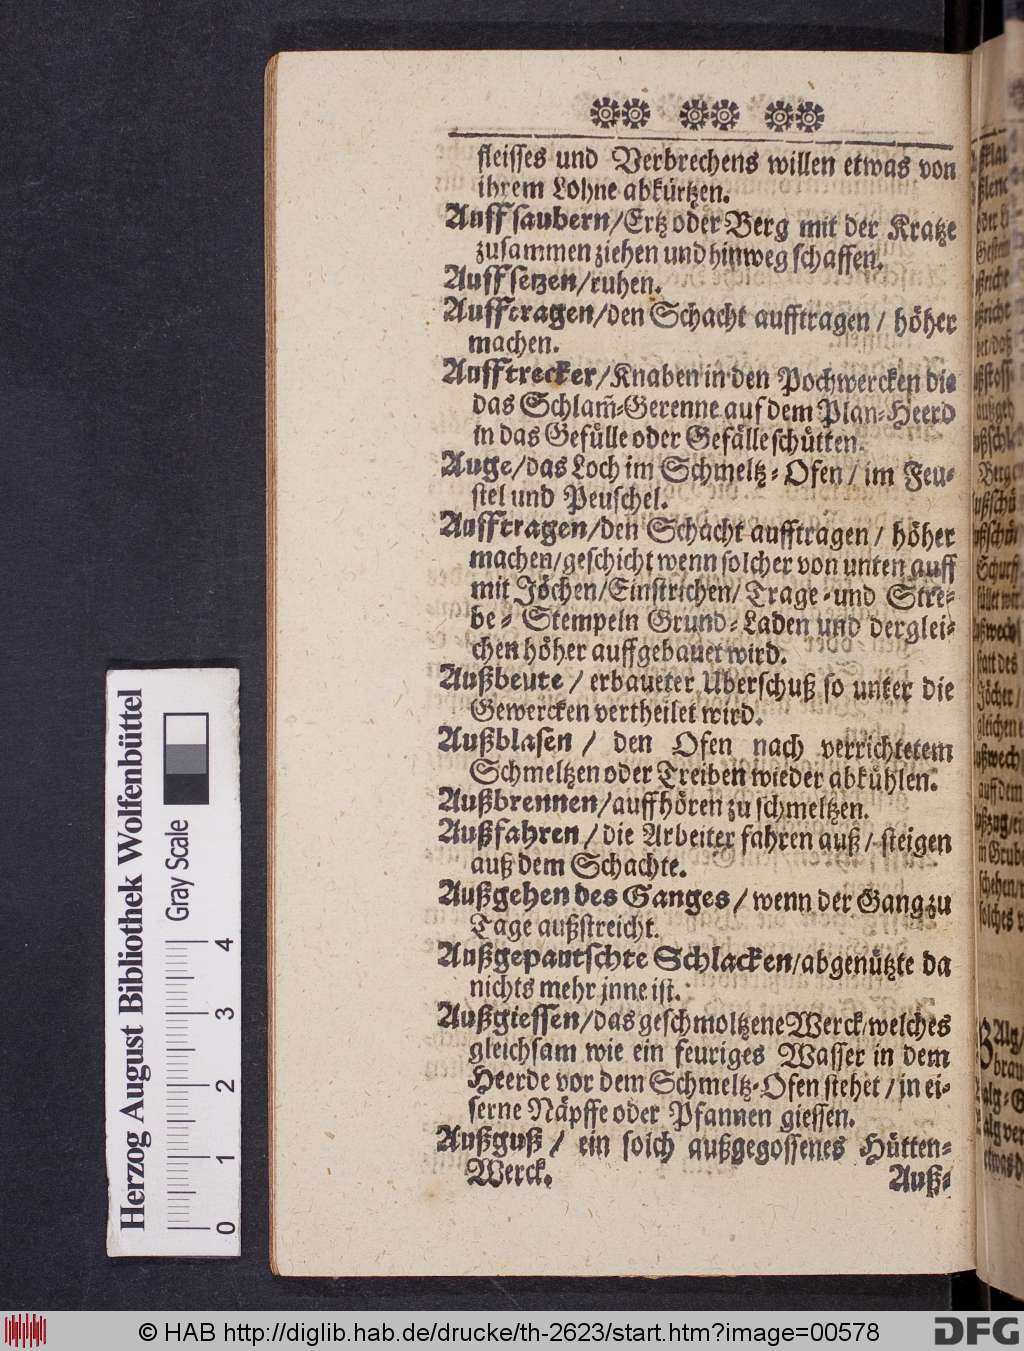 fleisses und Verbrechens willen etwas von
ihrem Lohne abkürtzen.
Auffsaubern/Ertz oder Berg mit der Kratze
zusammen ziehen und hinweg schaffen.
Auffsetzen/ruhen.
Aufftragen/den Schacht aufftragen / höher
machen.
Aufftrecker/Knaben in den Pochwercken die
das Schlam̃-Gerenne auf dem Plan-Heerd
in das Gefülle oder Gefälle schütten.
Auge/das Loch im Schmeltz-Ofen / im Feu-
stel und Peuschel.
Aufftragen/den Schacht aufftragen / höher
machen/geschicht wenn solcher von unten auff
mit Jöchen/Einstrichen/Trage-und Stre-
be-Stempeln Grund-Laden und derglei-
chen höher auffgebauet wird.
Außbeute / erbaueter Uberschuß so unter die
Gewercken vertheilet wird.
Außblasen / den Ofen nach verrichtetem
Schmeltzen oder Treiben wieder abkühlen.
Außbrennen/auffhören zu schmeltzen.
Außfahren / die Arbeiter fahren auß / steigen
auß dem Schachte.
Außgehen des Ganges / wenn der Gang zu
Tage außstreicht.
Außgepautschte Schlacken/abgenützte da
nichts mehr jnne ist.
Außgiessen/das geschmoltzene Werck/welches
gleichsam wie ein feuriges Wasser in dem
Heerde vor dem Schmeltz-Ofen stehet / in ei-
serne Näpffe oder Pfannen giessen.
Außguß / ein solch außgegossenes Hütten-
Werck.
Auß-
Herzog August Bibliothek Wolfenbüttel
Gray Scale
0 1 2 3 4
© HAB http://diglib.hab.de/drucke/th-2623/start.htm?image=00578
DFG